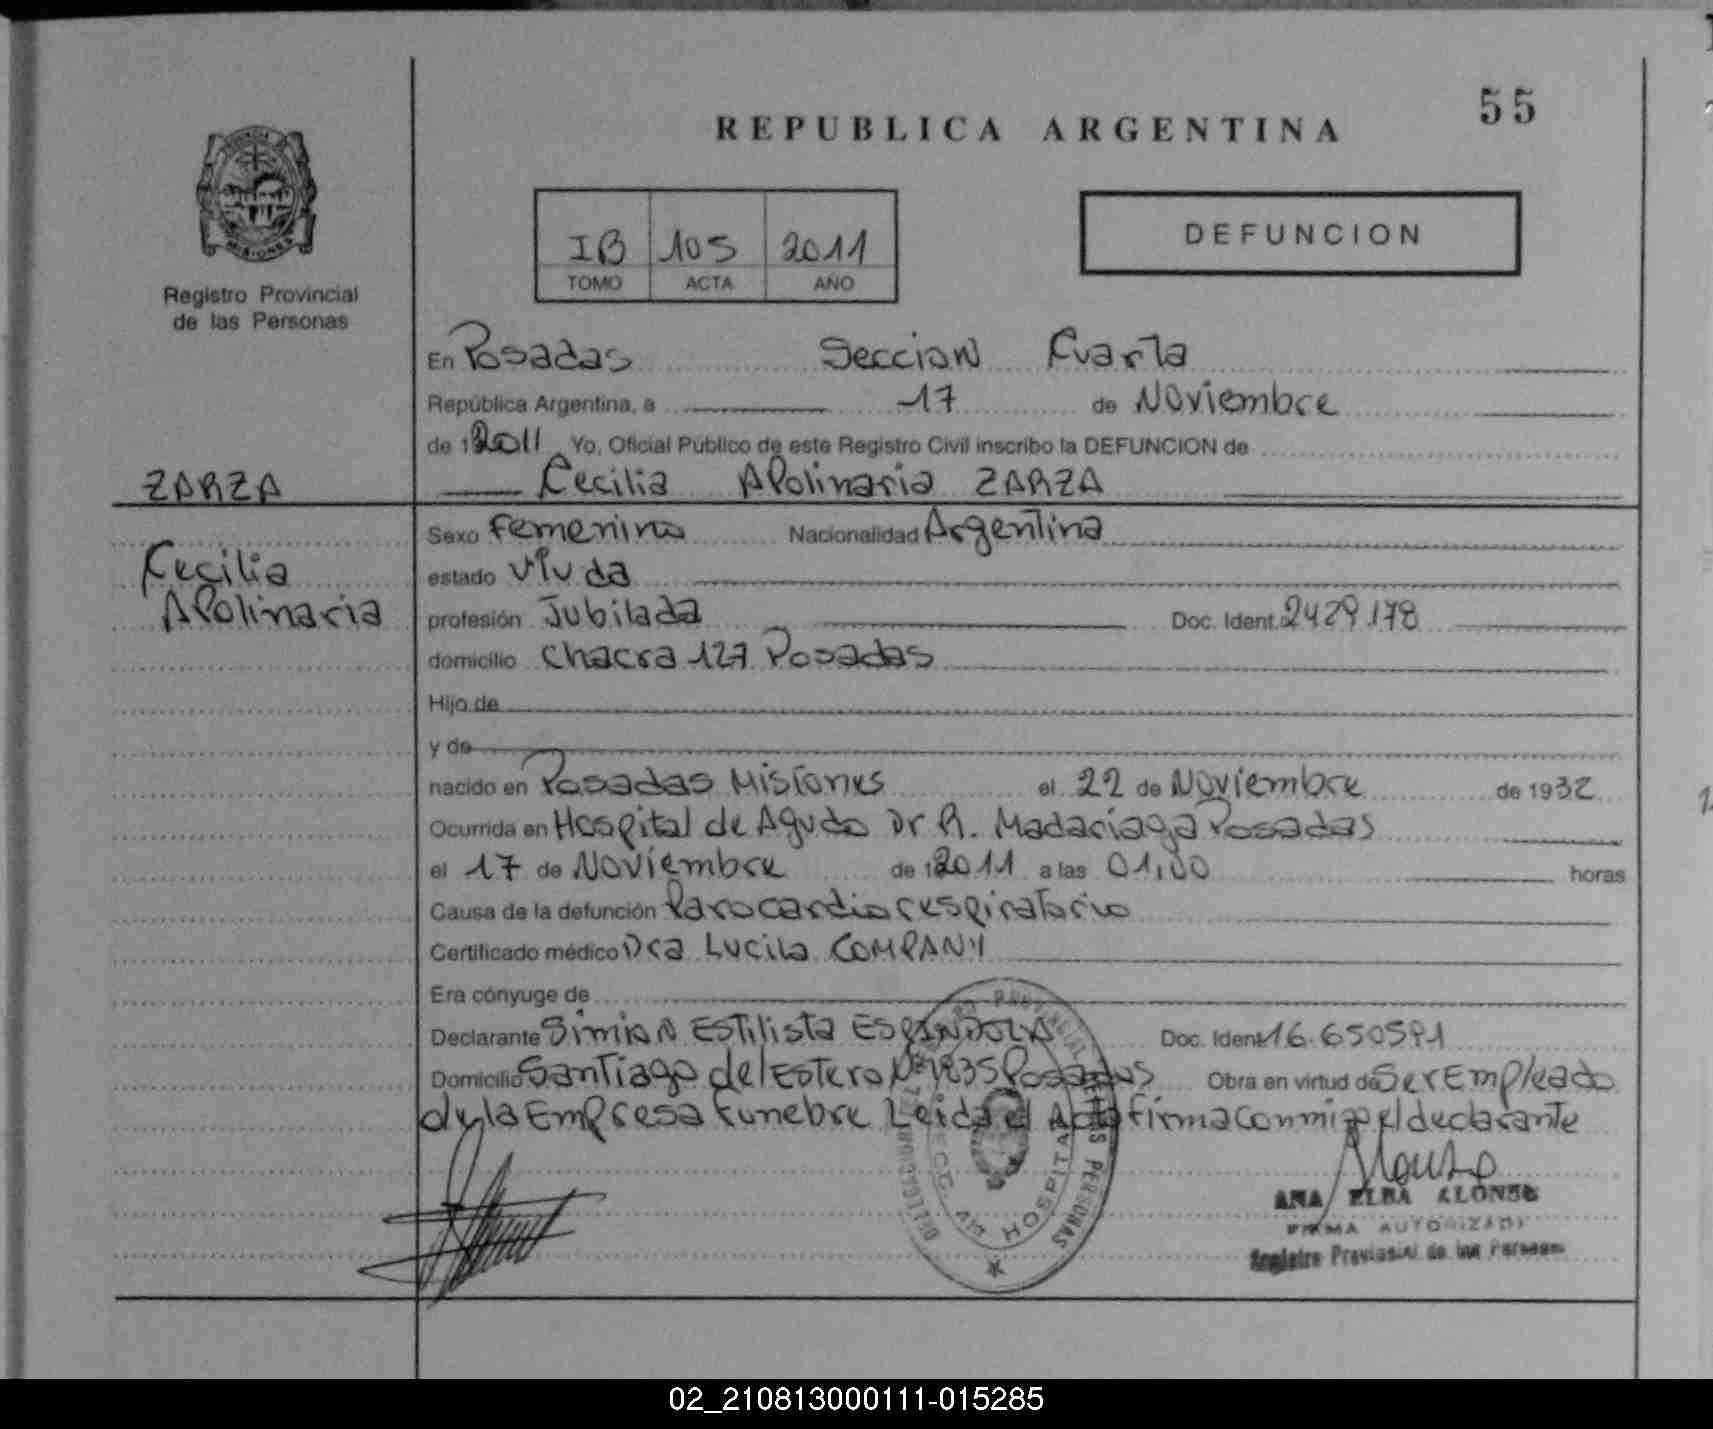 REPUBLICA ARGENTINA
55
IB 105 2011
TOMO ACTA AÑO
DEFUNCION
MISIONES
Registro Provincial
de las Personas
En Posadas Seccion Cuarta
República Argentina, a 17 de Noviembre
de 12011 Yo, Oficial Público de este Registro Civil inscribo la DEFUNCION de
ZARZA
Cecilia Apolinaria ZARZA
Cecilia
Apolinaria
Sexo Femenino Nacionalidad Argentina
estado Viuda
profesión Jubilada Doc. Ident. 2429.178
domicilio Chacra 127 Posadas
Hijo de
y de
nacido en Posadas Misiones el 22 de Noviembre de 1932
Ocurrida en Hospital de Agudo Dr R. Madariaga Posadas
el 17 de Noviembre de 12011 a las 01,00 horas
Causa de la defunción Parocardiorespiratorio
Certificado médico Dra Lucila COMPANY
Era cónyuge de
Declarante Simian Estilista ESPINDOLA Doc. Ident. 16.650591
Domicilio Santiago del Estero Nº 1835 Posadas Obra en virtud de Ser Empleado
de la Empresa Funebre Leida el Acta firma conmigo el declarante
ANA ELBA ALONSO
FIRMA AUTORIZADA
Registro Provincial de las Personas
02_210813000111-015285